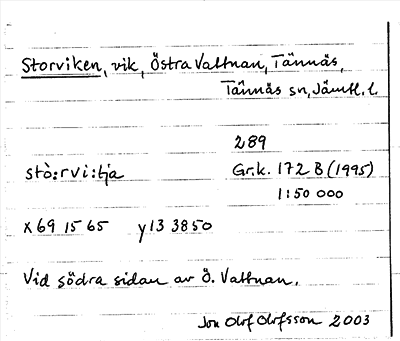 Storviken, vik, Östra Vattnan, Tännäs,
Tännäs sn, Jämtl. l.
289
stò:rvi:tja Gr.k. 172 B (1995)
1:50 000
x 69 15 65 y 13 38 50
Vid södra sidan av Ö. Vattnan.
Jon Olof Olofsson 2003